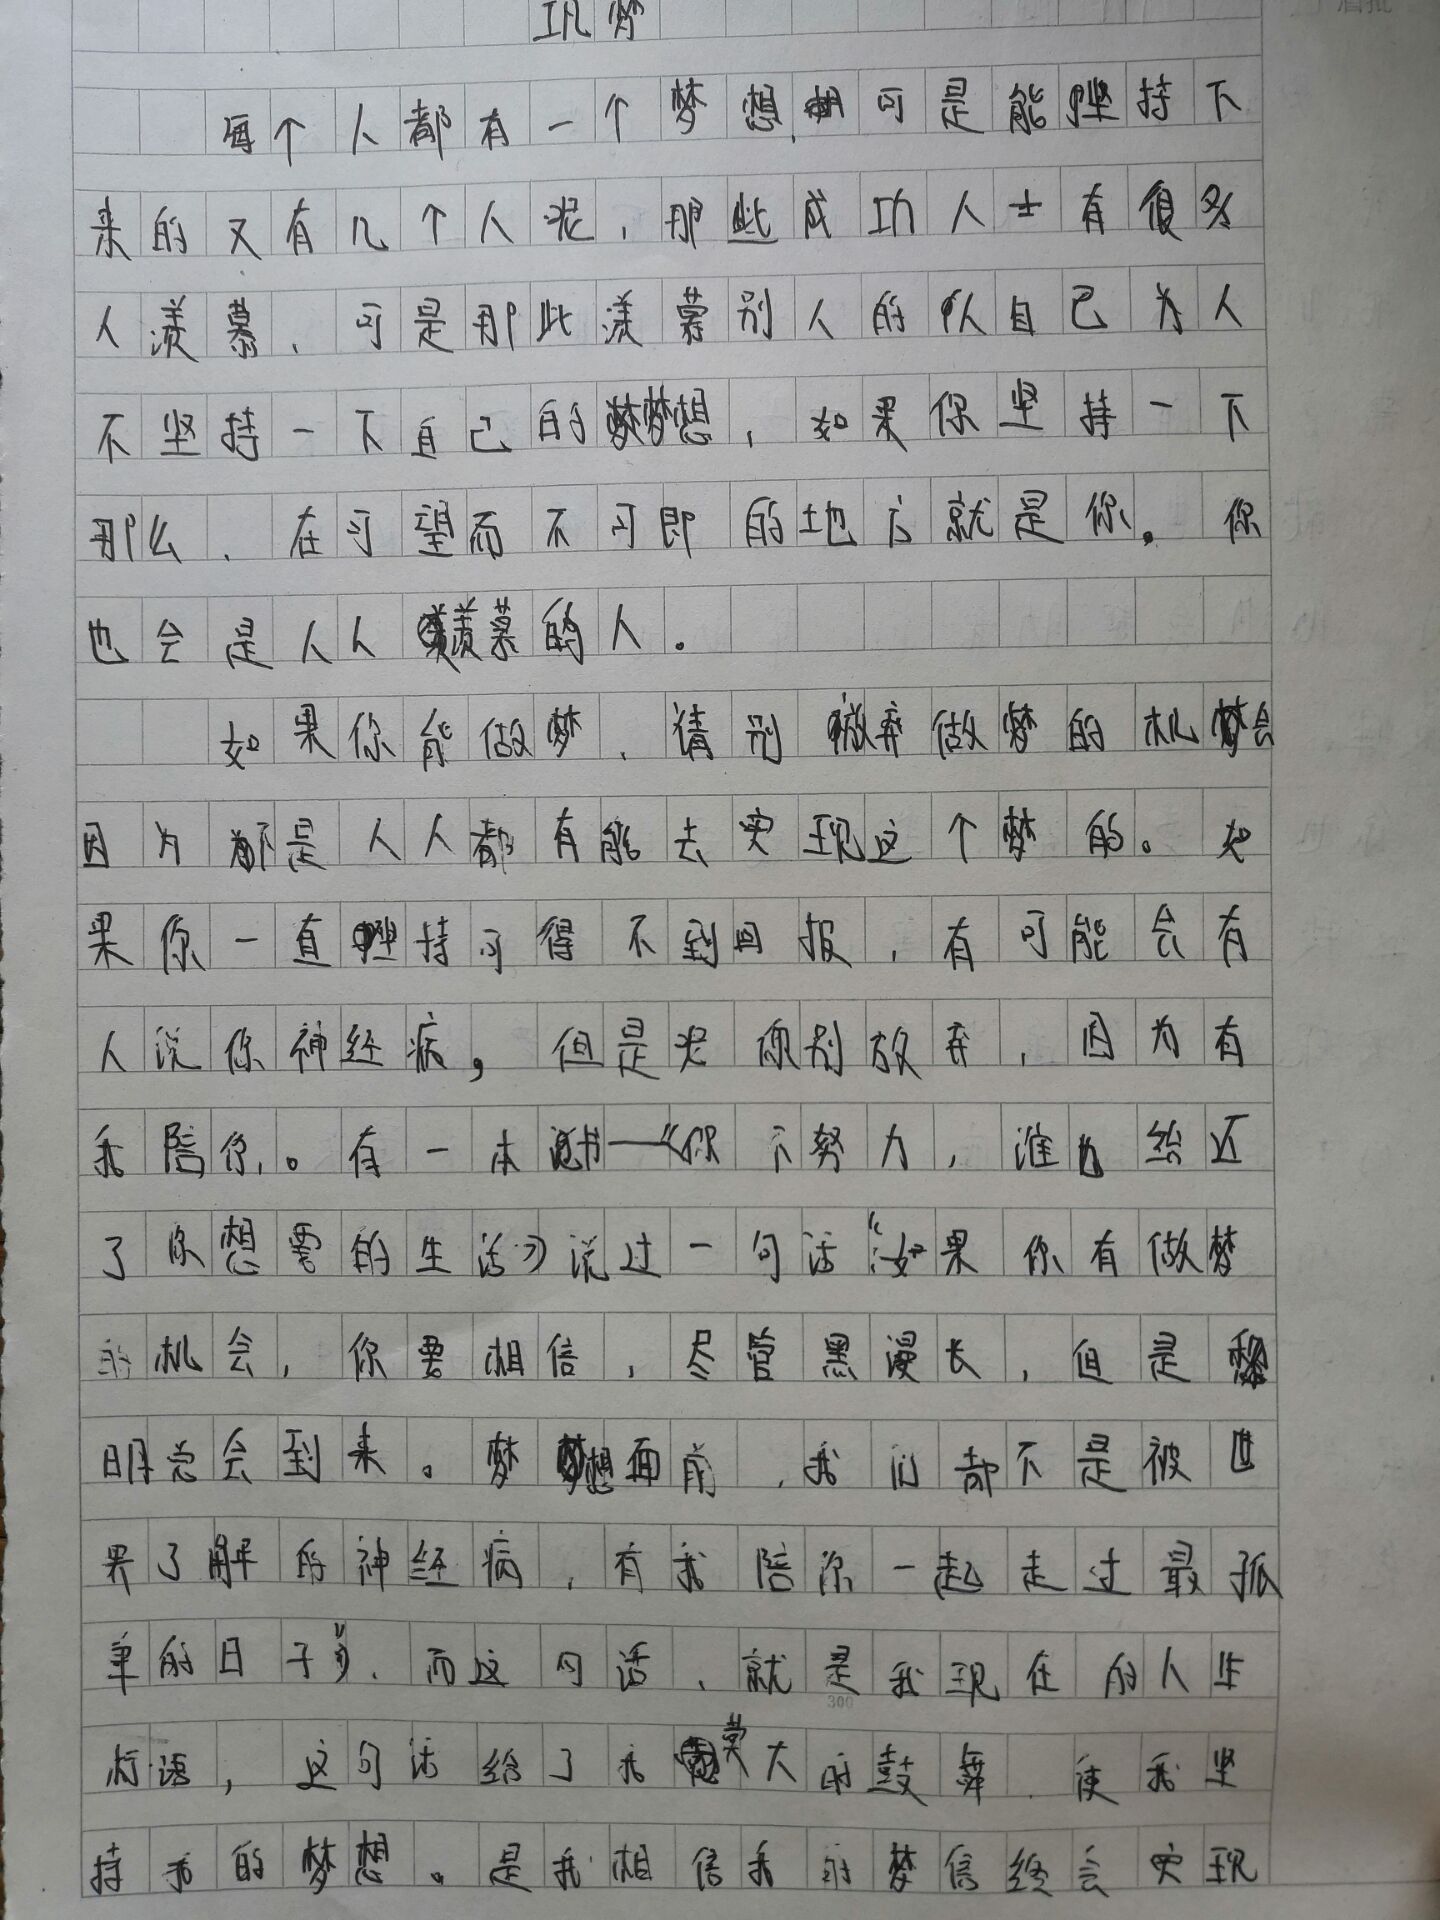 每个人都有一个梦想,可是能坚持下
来的又有几个人呢,那些成功人士有很多
人羡慕,可是那此羡慕别人的人自己为人
不坚持一下自己的梦想,如果你坚持一下
那么,在可望而不可即的地方就是你。你
也会是人人羡慕的人。
如果你能做梦,请别放弃做梦的机会
因为不是人人都有能去实现这个梦的。如
果你一直坚持可得不到回报,有可能会有
人说你神经病,但是呢你别放弃,因为有
我陪你。有一本书——《你不努力,谁也给还
了你想要的生活》说过一句话“如果你有做梦
的机会,你要相信,尽管黑漫长,但是黎
明总会到来。梦梦想面前,我们都不是被世
界了解的神经病,有我陪你一起走过最孤
单的日子”,而这句话,就是我现在的人生
标语,这句话给了我莫大的鼓舞,使我坚
持我的梦想。是我相信我的梦信终会实现
300